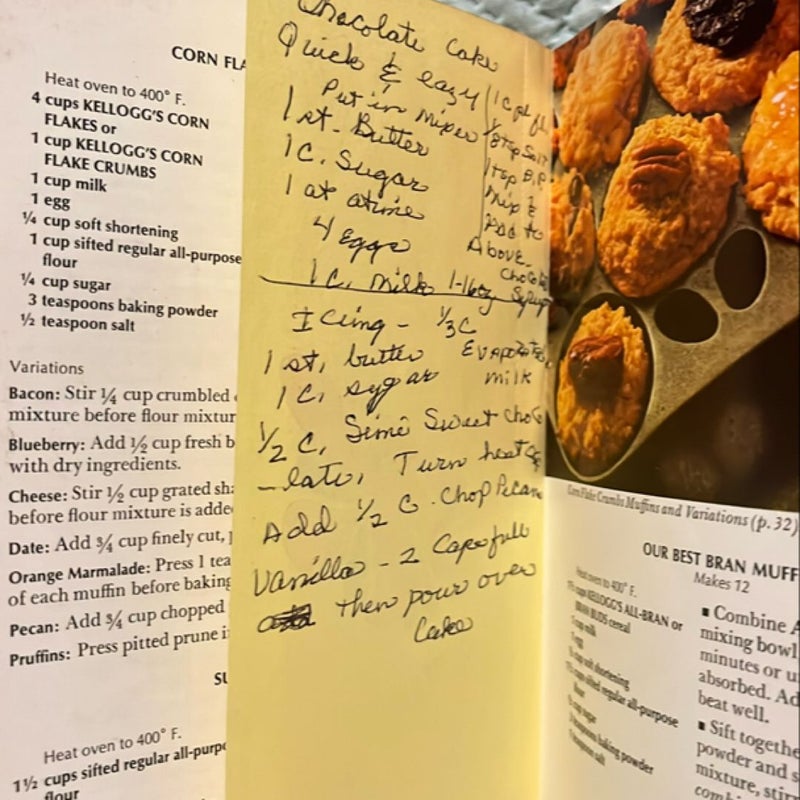 CORN FLA
Heat oven to 400° F.
4 cups KELLOGG'S CORN
FLAKES or
1 cup KELLOGG'S CORN
FLAKE CRUMBS
1 cup milk
1 egg
¼ cup soft shortening
1 cup sifted regular all-purpose
flour
¼ cup sugar
3 teaspoons baking powder
½ teaspoon salt
Variations
Bacon: Stir ¼ cup crumbled
mixture before flour mixtur
Blueberry: Add ½ cup fresh b
with dry ingredients.
Cheese: Stir ½ cup grated sha
before flour mixture is adde
Date: Add ¾ cup finely cut,
Orange Marmalade: Press 1 tea
of each muffin before baking
Pecan: Add ¾ cup chopped
Pruffins: Press pitted prune i
SU
Heat oven to 400° F.
1½ cups sifted regular all-purpo
flour
Chocolate Cake
Quick & eazy
Put in mixer
1 st. Butter
1 C. Sugar
1 at atime
4 Eggs
1 C. milk
1 C
Salt
1 tsp B.P.
mix &
Add to
Above
1-16oz
Syrup
Icing - ⅓ C
Evaporated
milk
1 st, butter
1 C, sugar
½ C, Simi Sweet Choco
-late, Turn heat
Add ½ C. Chop Pecan
Vanilla - 2 Capsfull
then pour over
Cake
Corn Flake Crumbs Muffins and Variations (p. 32)
OUR BEST BRAN MUFF
Makes 12
Heat oven to 400° F.
KELLOGG'S ALL-BRAN or
BRAN BUDS cereal
milk
egg
soft shortening
sifted regular all-purpose
flour
sugar
teaspoons baking powder
teaspoon salt
■ Combine A
mixing bowl
minutes or u
absorbed. Ad
beat well.
■ Sift togethe
powder and s
mixture, stir
combi